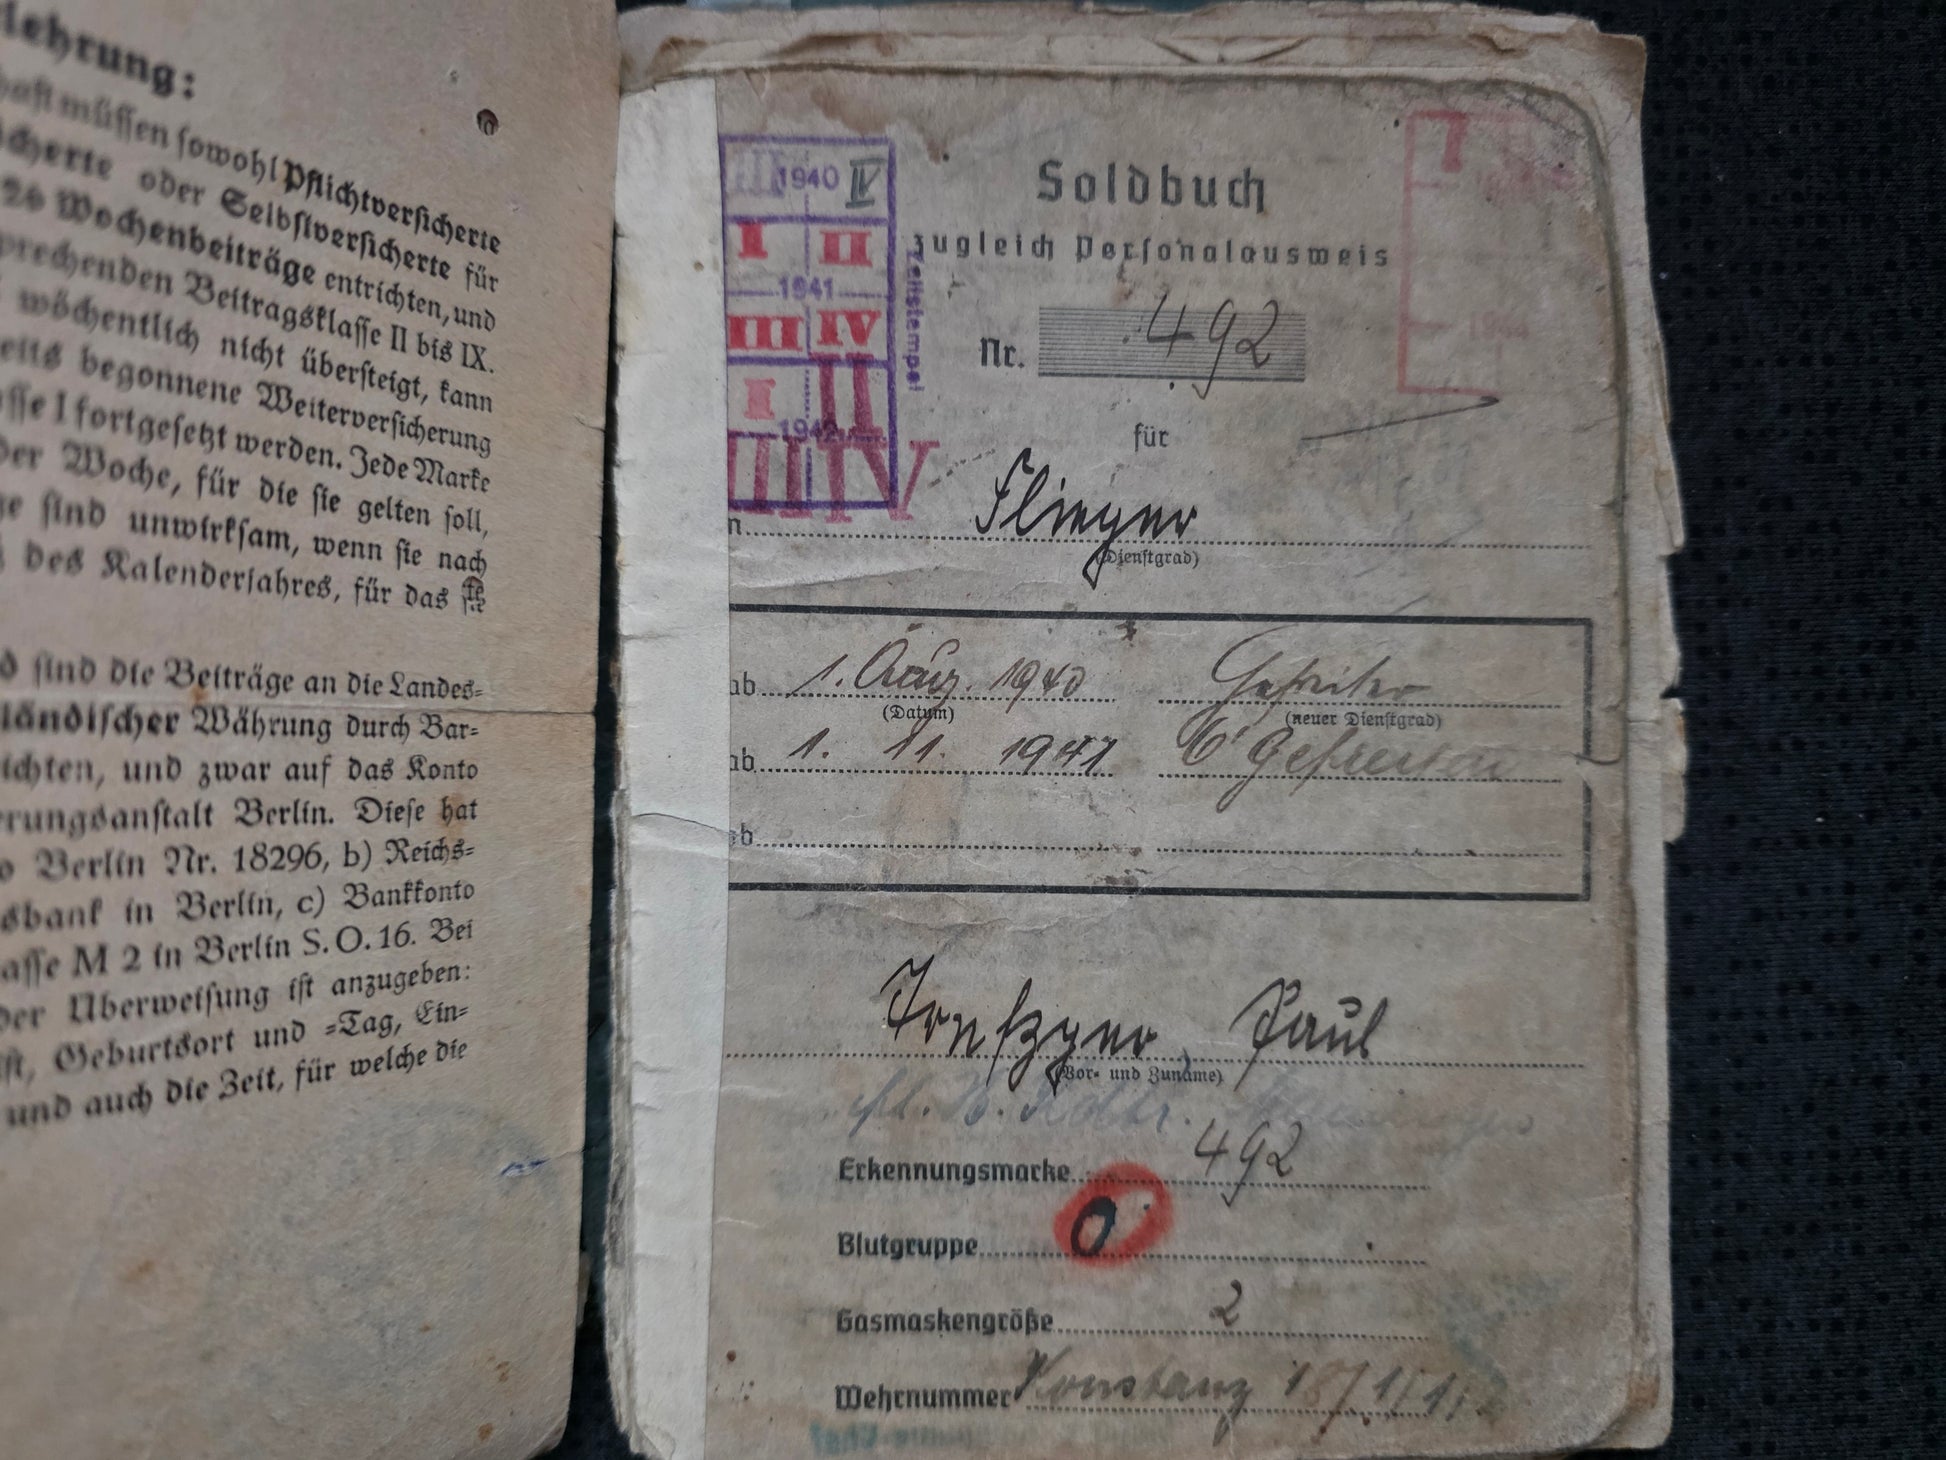 lehrung:
haft müssen sowohl Pflichtversicherte
icherte oder Selbstversicherte für
26 Wochenbeiträge entrichten, und
prechenden Beitragsklasse II bis IX.
wöchentlich nicht übersteigt, kann
eits begonnene Weiterversicherung
sse I fortgesetzt werden. Jede Marke
der Woche, für die sie gelten soll,
ge sind unwirksam, wenn sie nach
des Kalenderjahres, für das sie
sind die Beiträge an die Landes-
ländischer Währung durch Bar-
ichten, und zwar auf das Konto
erungsanstalt Berlin. Diese hat
o Berlin Nr. 18296, b) Reichs-
sbank in Berlin, c) Bankkonto
asse M 2 in Berlin S.O. 16. Bei
der Überweisung ist anzugeben:
ft, Geburtsort und -Tag, Ein-
und auch die Zeit, für welche die
III 1940 IV
I II
1941
III IV
I II
1942
III IV
Zeitstempel
Soldbuch
zugleich Personalausweis
Nr. 492
für
n Flieger
(Dienstgrad)
ab 1. Aug. 1940 Gefreiter
(Datum) (neuer Dienstgrad)
ab 1. 11. 1941 O'Gefreiten
ab
Trefzger, Paul
(Vor- und Zuname)
Erkennungsmarke 492
Blutgruppe 0
Gasmaskengröße 2
Wehrnummer Konstanz